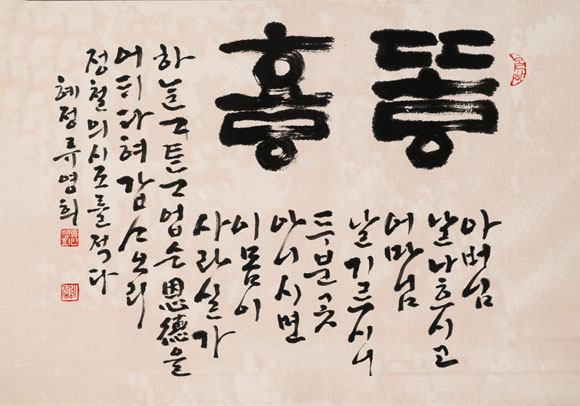 아버님
날 나흐시고
어마님
날 기르시니
두분곳
아니시면
이 몸이
사라실가
하늘 ᄀᆞ튼 ᄀᆞ업슨 恩德을
어듸다혀 갑스오리
정철의 시조를 적다
혜정 류영희